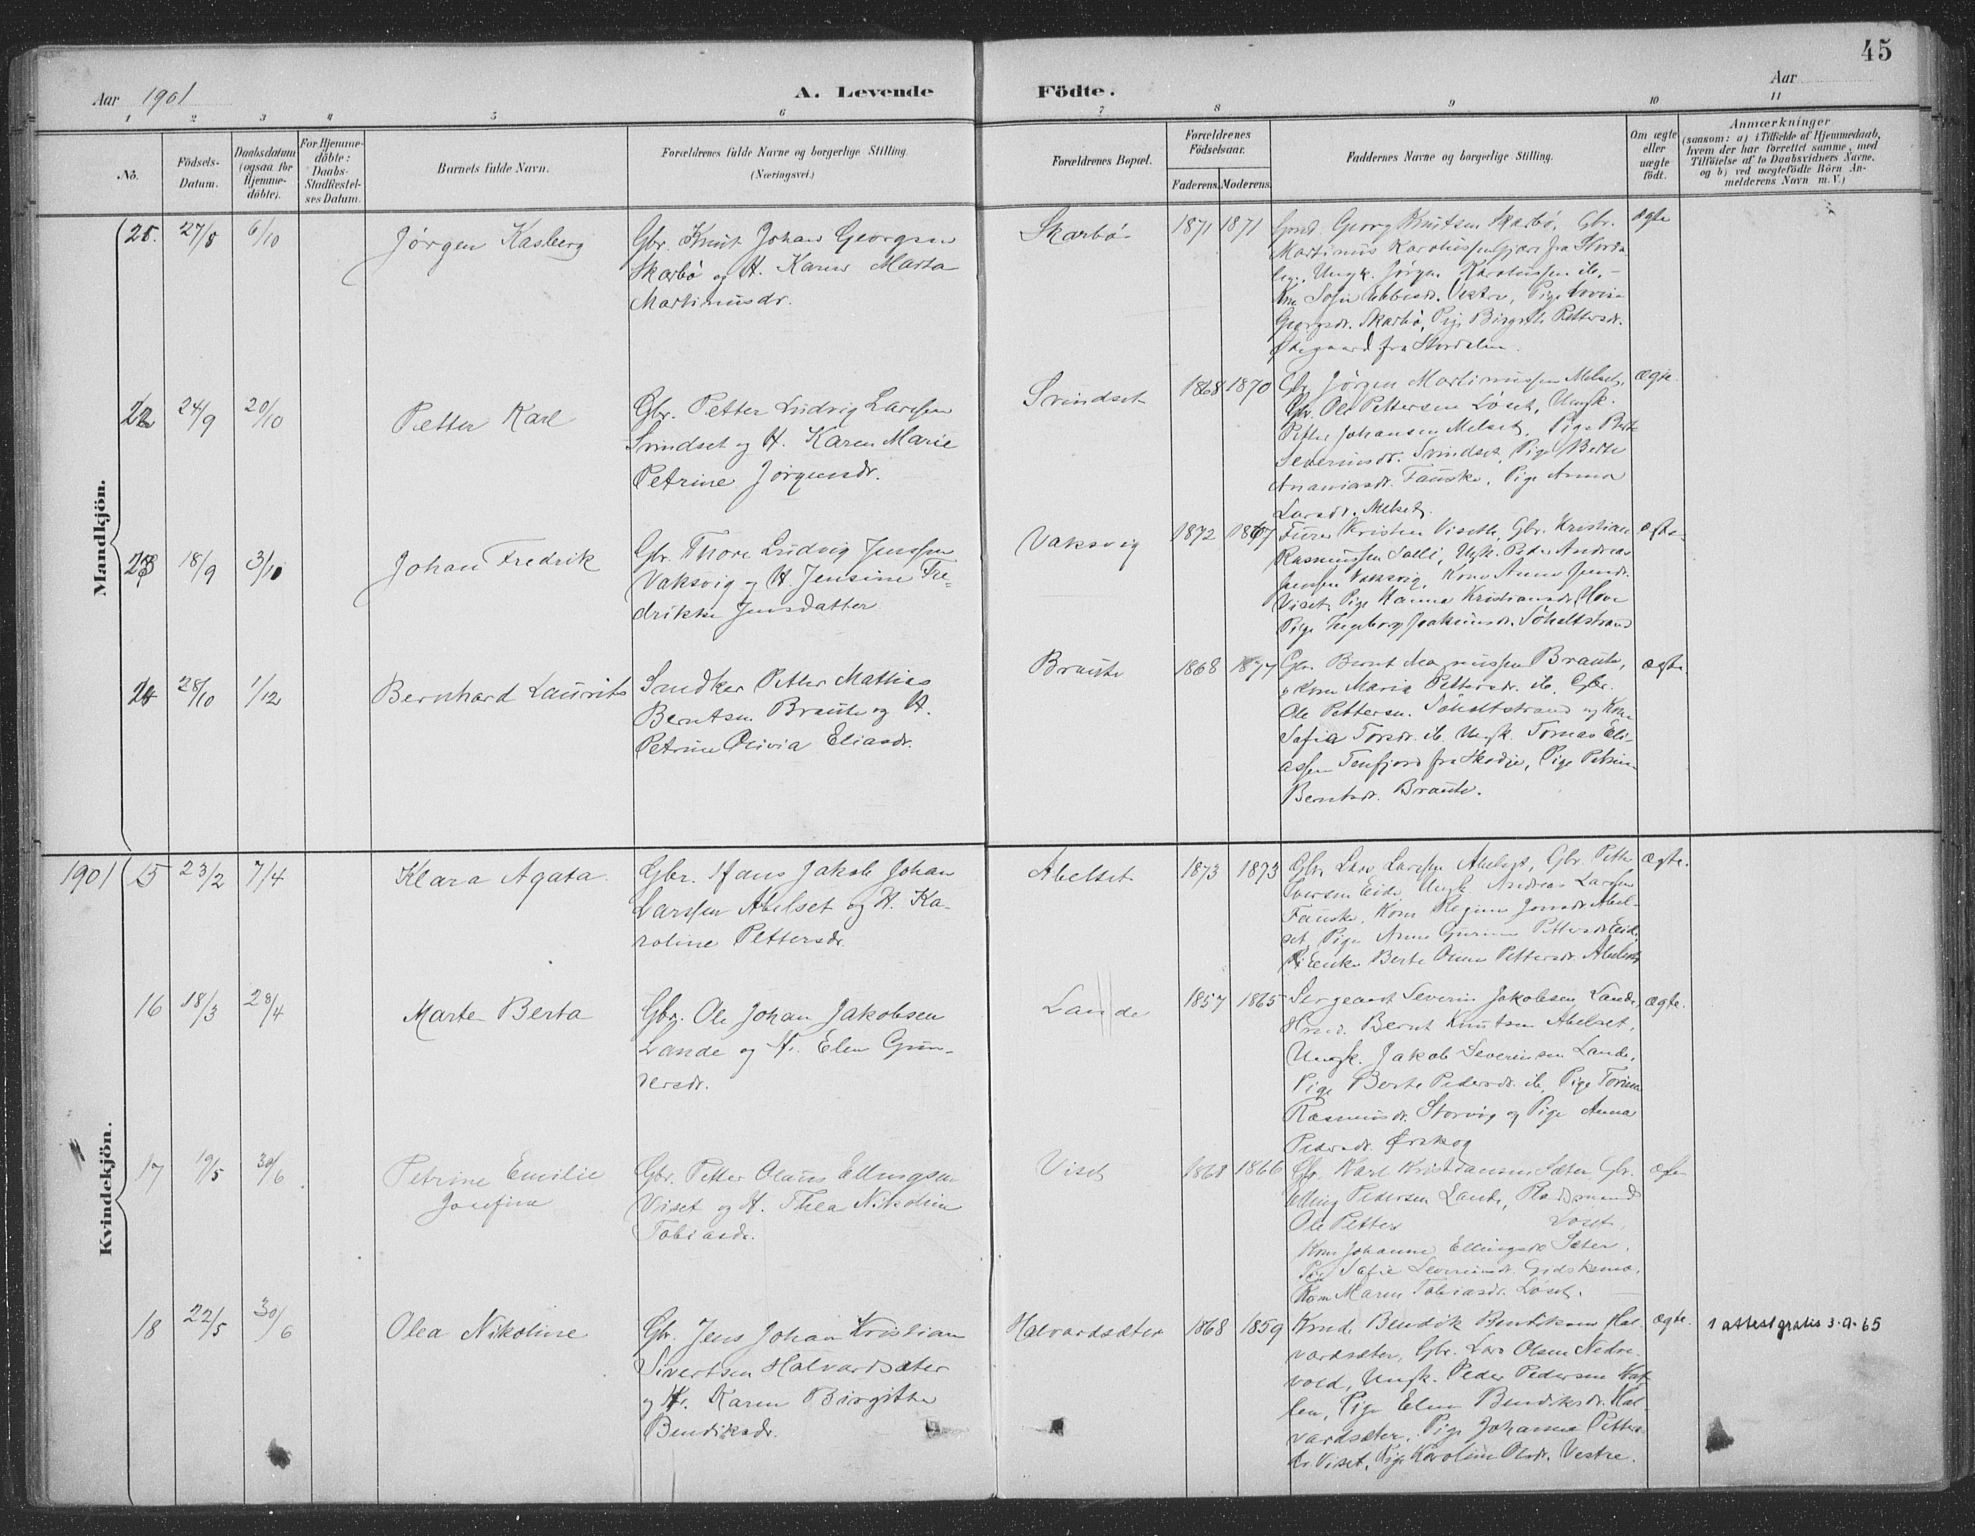 45
Aar 1901
A. Levende Födte.
Aar
1 2 3 4 5 6 7 8 9 10 11
No.
Födsels-Datum.
Daabsdatum (ogsaa for Hjemmedöbte).
For Hjemmedöbte: Daabs-Stadfæstelses Datum.
Barnets fulde Navn.
Forældrenes fulde Navne og borgerlige Stilling. (Næringsvei.)
Forældrenes Bopæl.
Forældrenes Födselsaar.
Faderens. Moderens.
Faddernes Navne og borgerlige Stilling.
Om ægte eller uægte födt.
Anmærkninger
(saasom: a) i Tilfælde af Hjemmedaab,
hvem der har forrettet samme, med
Tilföielse af to Daabsvidners Navne,
og b) ved uægtefödte Börn An-
melderens Navn m. V.)
Mandkjön.
25. 27/8 6/10
Jørgen Kasberg
Gbr. Knut Johan Georgsen
Skarbø og H. Karen Marta
Martinusdr.
Skarbø
1871 1871
Gmd. Georg Knutsen Skarbø, Gbr.
Martinus Karolussen fra Storda-
len, Ungk. Jørgen Karolussen ib.
Kone Sofie Ebbesdr. Vestre, Pige
Georgsdr. Skarbø, Pige Birgitte Pettersdr.
Øvregaard fra Stordalen.
ægte
22 24/9 20/10
Petter Karl
Gbr. Petter Ludvig Larssen
Svindset og H. Karen Marie
Petrine Jørgensdr.
Svindset
1868 1870
Gbr. Jørgen Martinussen Melset,
Gbr. Ole Pettersen Løset, Ungk.
Petter Johansen Melset, Pige Berte
Severinsdr. Svindset, Pige Berte
Ananiasdr. Fauske, Pige Anna
Larsdr. Melset.
ægte.
23 18/9 3/10
Johan Fredrik
Gbr. Thore Ludvig Jenssen
Vaksvig og H. Jensine Fre-
drikke Jensdatter.
Vaksvig
1872 1867
Furer Kristen Viset, Gbr. Kristian
Rasmussen Solli, Ungk. Peder Andreas
Jenssen Vaksvig, Kone Anna Jensdr.
Viset, Pige Hanna Kristiansdr. Hove
Pige Ingeborg Joakimsdr. Søholtstrand
ægte
24 28/10 1/12
Bernhard Laurits
Snedker Petter Mathias
Berntsen Braute og H.
Petrine Olivia Eliasdr.
Braute
1868 1877
Gbr. Bernt Magnussen Braute,
og Kone Maria Pettersdr. ib. Gbr.
Ole Pettersen Søholtstrand og Kone
Sofia Torsdr. ib. Ungk. Tomas Eli-
assen Tenfjord fra Skodje, Pige Petrine
Berntsdr. Braute.
ægte.
Kvindekjön.
1901
15 23/2 7/4
Klara Agata.
Gbr. Hans Jakob Johan
Larssen Abelset og H. Ka-
roline Pettersdr.
Abelset
1873 1873
Gbr. Lars Larssen Abelset, Gbr. Petter
Iversen Eide, Ungk. Andreas Larssen
Fauske, Kone Regine Jonsdr. Abel-
set, Pige Anne Gurine Pettersdr. Eide
Enke Berte Anna Pettersdr. Abelset
ægte.
16 18/3 28/4
Marte Berta
Gbr. Ole Johan Jakobsen
Lande og H. Elen Gun-
nersdr.
Lande
1857 1865
Sergeant Severin Jakobsen Lande,
Hmd. Bernt Knutsen Abelset,
Ungk. Jakob Severinsen Lande,
Pige Berte Pedersdr. ib, Pige Torina
Rasmusdr. Storvig og Pige Anna
Pedersdr. Ørskog
ægte.
17 19/5 30/6
Petrine Emilie
Josefine
Gbr. Petter Olaus Ellingsen
Viset og H. Thea Nikoline
Tobiasdr.
Viset
1868 1866
Gbr. Karl Kristiansen Sæter, Gbr.
Elling Pedersen Lande, Rodsmand
Ole Petter Løset,
Kone Johanne Ellingsdr. Sæter,
Pige Sofie Severinsdr. Gidskemo,
Kone Maren Tobiasdr. Løset.
ægte
18 22/5 30/6
Olea Nikoline
Gbr. Jens Johan Kristian
Sivertsen Halvardsæter
og H. Karen Birgitte
Bendiksdr.
Halvardsæter
1868 1859
Kmd. Bendik Bendiksen Hal-
vardsæter, Gbr. Lars Olsen Nedre-
vold, Ungk. Peder Pedersen
Pige Elen Bendiksdr. Hal-
vardsæter, Pige Johanna Petters-
dr. Viset, Pige Karoline Olsdr. Vestre.
ægte.
1 attest gratis 3-9-65